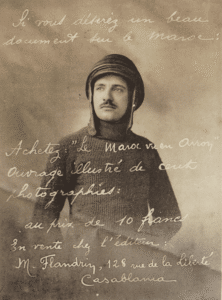 Si vous désirez un beau
document sur le Maroc :
Achetez : "Le Maroc vu en Avion
Ouvrage illustré de cent
photographies :
au prix de 10 francs
En vente chez l'éditeur :
M. Flandrin, 128 rue de la Liberté
Casablanca